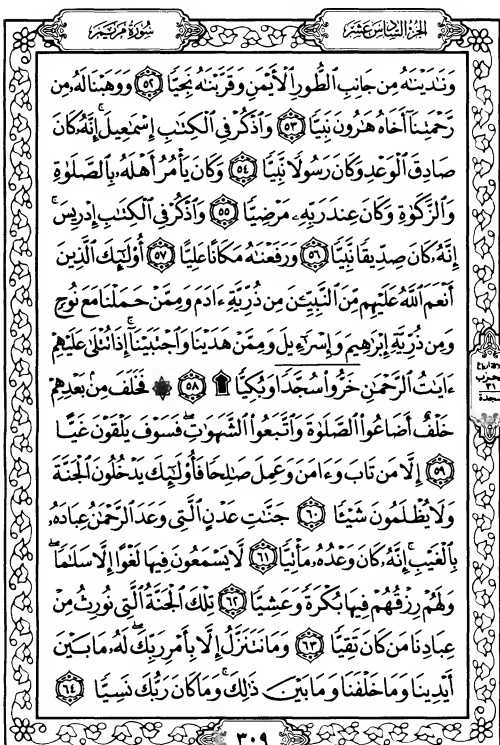 سُورَةُ مَرْيَمَ الجُزْءُ السَّادِسَ عَشَرَ
وَنَٰدَيْنَٰهُ مِن جَانِبِ ٱلطُّورِ ٱلْأَيْمَنِ وَقَرَّبْنَٰهُ نَجِيًّا ۝٥٢ وَوَهَبْنَا لَهُۥ مِن
رَّحْمَتِنَآ أَخَاهُ هَٰرُونَ نَبِيًّا ۝٥٣ وَٱذْكُرْ فِى ٱلْكِتَٰبِ إِسْمَٰعِيلَ ۚ إِنَّهُۥ كَانَ
صَادِقَ ٱلْوَعْدِ وَكَانَ رَسُولًا نَّبِيًّا ۝٥٤ وَكَانَ يَأْمُرُ أَهْلَهُۥ بِٱلصَّلَوٰةِ
وَٱلزَّكَوٰةِ وَكَانَ عِندَ رَبِّهِۦ مَرْضِيًّا ۝٥٥ وَٱذْكُرْ فِى ٱلْكِتَٰبِ إِدْرِيسَ ۚ
إِنَّهُۥ كَانَ صِدِّيقًا نَّبِيًّا ۝٥٦ وَرَفَعْنَٰهُ مَكَانًا عَلِيًّا ۝٥٧ أُو۟لَٰٓئِكَ ٱلَّذِينَ
أَنْعَمَ ٱللَّهُ عَلَيْهِم مِّنَ ٱلنَّبِيِّـۧنَ مِن ذُرِّيَّةِ ءَادَمَ وَمِمَّنْ حَمَلْنَا مَعَ نُوحٍ
وَمِن ذُرِّيَّةِ إِبْرَٰهِيمَ وَإِسْرَٰٓءِيلَ وَمِمَّنْ هَدَيْنَا وَٱجْتَبَيْنَآ ۚ إِذَا تُتْلَىٰ عَلَيْهِمْ
ءَايَٰتُ ٱلرَّحْمَٰنِ خَرُّوا۟ سُجَّدًا وَبُكِيًّا ۩ ۝٥٨ ۞ فَخَلَفَ مِنۢ بَعْدِهِمْ
خَلْفٌ أَضَاعُوا۟ ٱلصَّلَوٰةَ وَٱتَّبَعُوا۟ ٱلشَّهَوَٰتِ ۖ فَسَوْفَ يَلْقَوْنَ غَيًّا
۝٥٩ إِلَّا مَن تَابَ وَءَامَنَ وَعَمِلَ صَٰلِحًا فَأُو۟لَٰٓئِكَ يَدْخُلُونَ ٱلْجَنَّةَ
وَلَا يُظْلَمُونَ شَيْـًٔا ۝٦٠ جَنَّٰتِ عَدْنٍ ٱلَّتِى وَعَدَ ٱلرَّحْمَٰنُ عِبَادَهُۥ
بِٱلْغَيْبِ ۚ إِنَّهُۥ كَانَ وَعْدُهُۥ مَأْتِيًّا ۝٦١ لَّا يَسْمَعُونَ فِيهَا لَغْوًا إِلَّا سَلَٰمًا ۖ
وَلَهُمْ رِزْقُهُمْ فِيهَا بُكْرَةً وَعَشِيًّا ۝٦٢ تِلْكَ ٱلْجَنَّةُ ٱلَّتِى نُورِثُ مِنْ
عِبَادِنَا مَن كَانَ تَقِيًّا ۝٦٣ وَمَا نَتَنَزَّلُ إِلَّا بِأَمْرِ رَبِّكَ ۖ لَهُۥ مَا بَيْنَ
أَيْدِينَا وَمَا خَلْفَنَا وَمَا بَيْنَ ذَٰلِكَ ۚ وَمَا كَانَ رَبُّكَ نَسِيًّا ۝٦٤
حزب
٣١
سجدة
٣٠٩